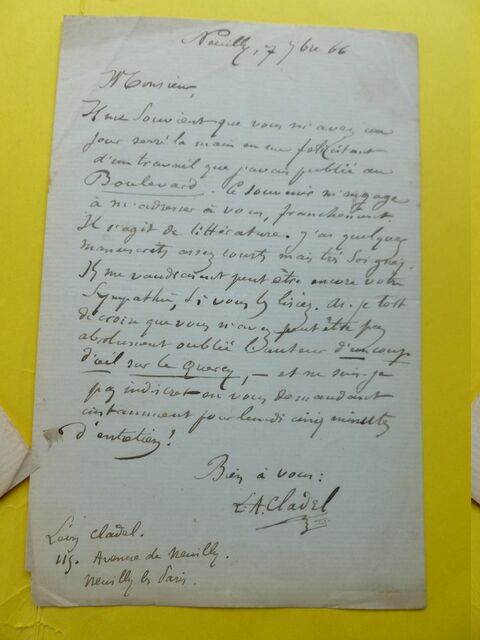 Neuilly, 7 7bre 66
Monsieur,
Il me souvient que vous m'avez un
jour serré la main en me félicitant
d'un travail que j'avais publié au
Boulevard. Ce souvenir m'engage
à m'adresser à vous, franchement.
Il s'agit de littérature. J'ai quelques
manuscrits assez courts mais très soignés.
Ils me vaudraient peut être encore votre
sympathie, si vous les lisiez. Ai-je tort
de croire que vous n'avez peut être pas
absolument oublié l'auteur d'un coup
d'œil sur le Quercy, — et ne suis-je
pas indiscret en vous demandant
instamment pour lundi cinq minutes
d'entretien?
Bien à vous:
L A. Cladel
Léon Cladel.
115. Avenue de Neuilly.
Neuilly les Paris.